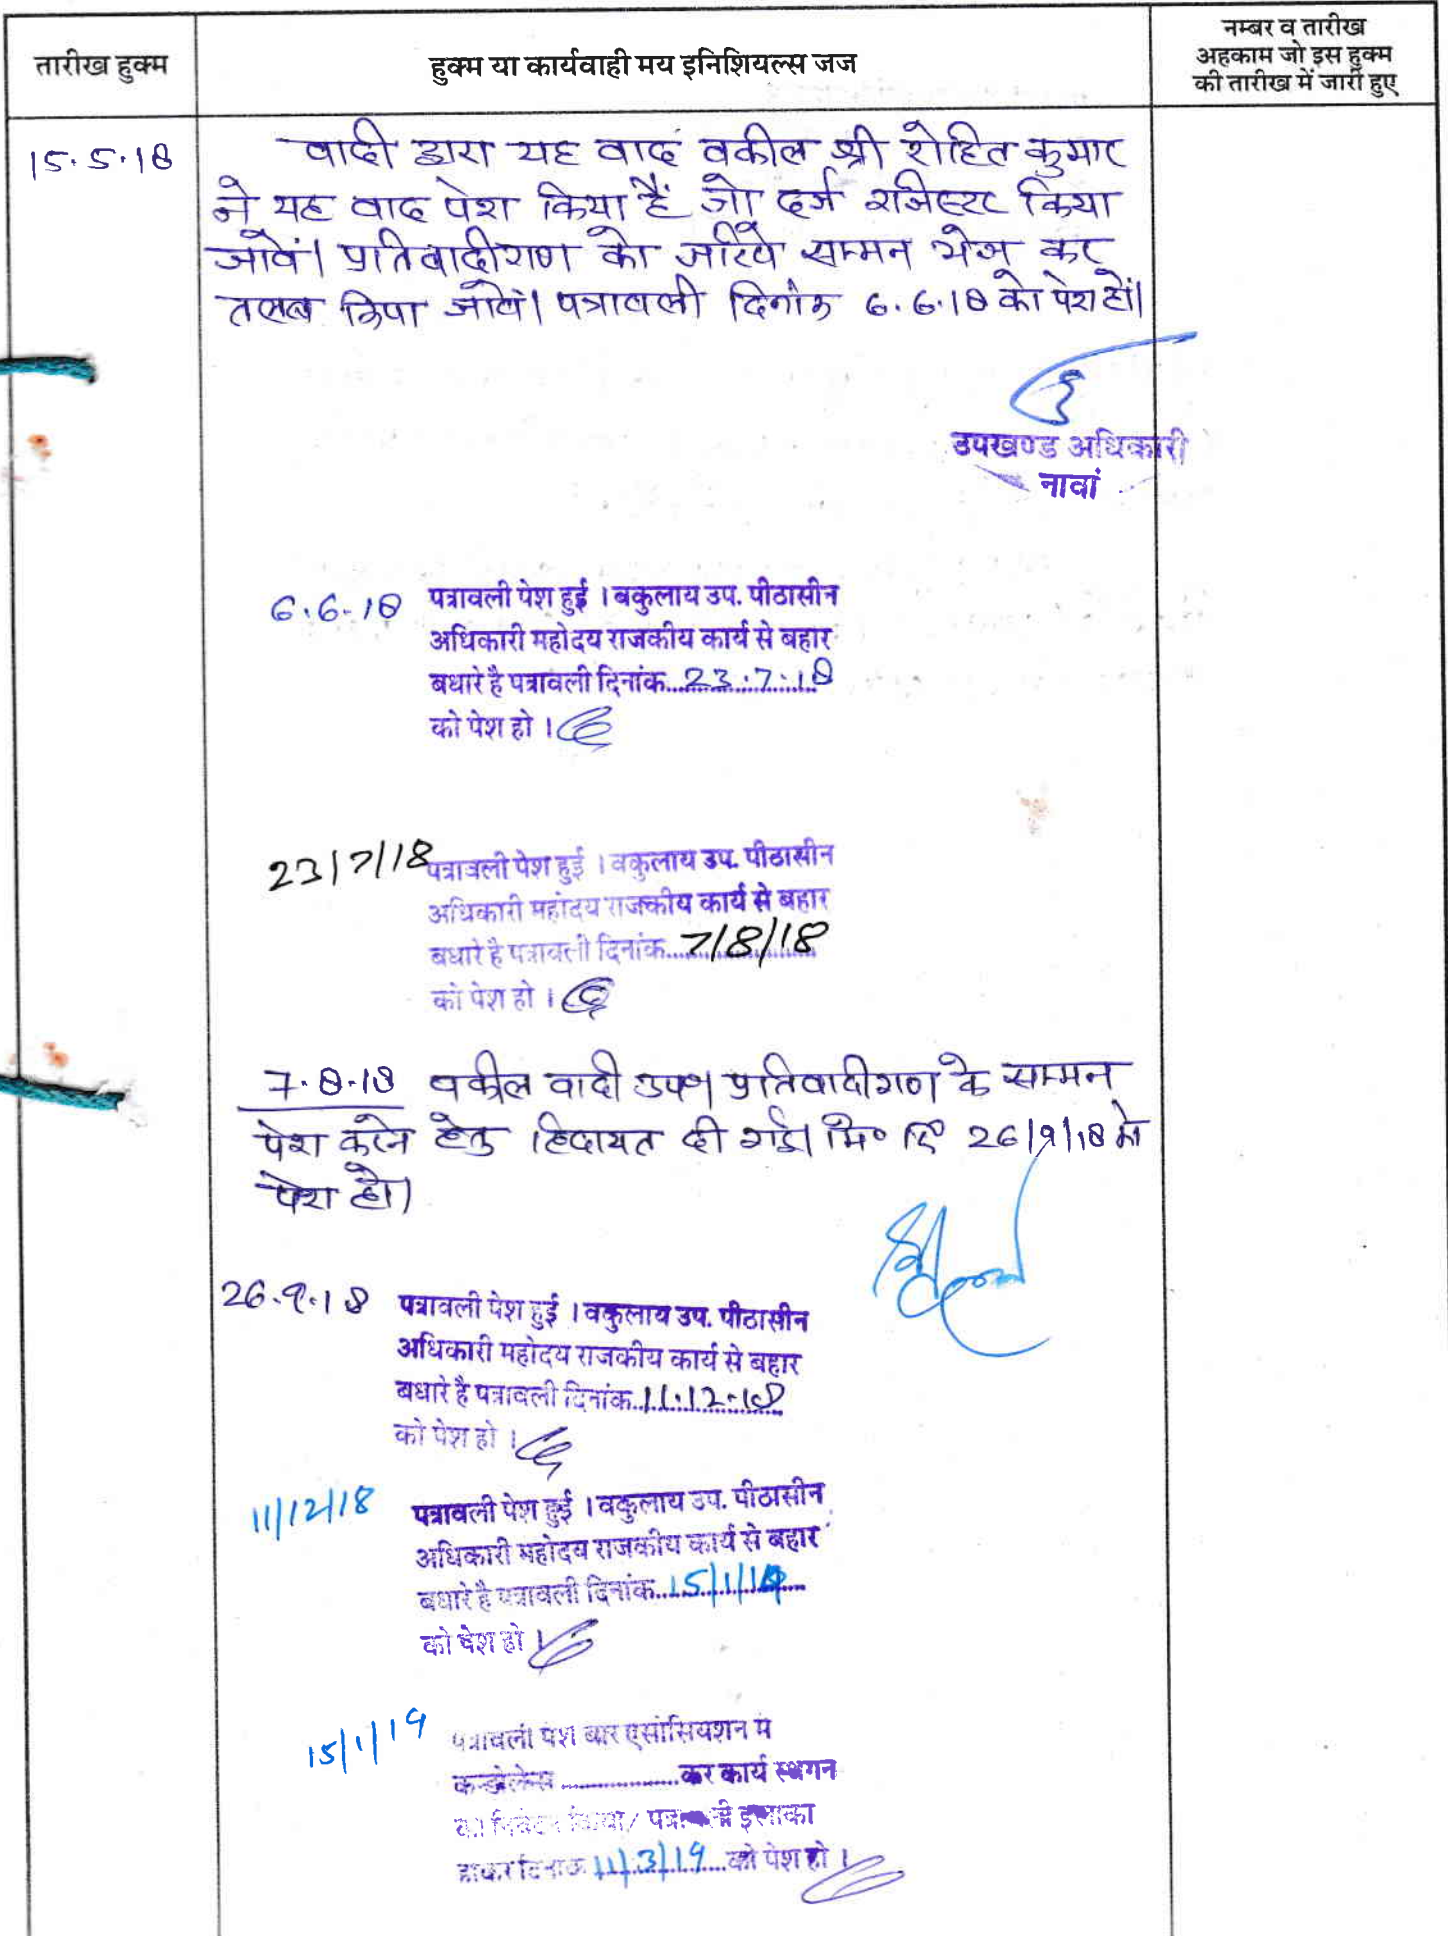 तारीख हुक्म
हुक्म या कार्यवाही मय इनिशियल्स जज
नम्बर व तारीख
अहकाम जो इस हुक्म
की तारीख में जारी हुए
15.5.18
वादी द्वारा यह वाद वकील श्री रोहित कुमार
ने यह वाद पेश किया हैं जो दर्ज रजिस्टर किया
जावें। प्रतिवादीगण को जरिये सम्मन भेज कर
तलब किया जावें। पत्रावली दिनांक 6.6.18 को पेश हों।
उपखण्ड अधिकारी
नावां
6.6.18 पत्रावली पेश हुई । बकुलाय उप. पीठासीन
अधिकारी महोदय राजकीय कार्य से बहार
बधारे है पत्रावली दिनांक 23.7.18
को पेश हो ।
23/7/18 पत्रावली पेश हुई । वकुलाय उप. पीठासीन
अधिकारी महोदय राजकीय कार्य से बहार
बधारे है पत्रावली दिनांक 7/8/18
को पेश हो ।
7.8.18 वकील वादी उप। प्रतिवादीगण के सम्मन
पेश करने हेतु हिदायत दी गई। 26/9/18 को
पेश हो।
26.9.18 पत्रावली पेश हुई । वकुलाय उप. पीठासीन
अधिकारी महोदय राजकीय कार्य से बहार
बधारे है पत्रावली दिनांक 11.12.18
को पेश हो ।
11/12/18 पत्रावली पेश हुई । वकुलाय उप. पीठासीन
अधिकारी महोदय राजकीय कार्य से बहार
बधारे है पत्रावली दिनांक 15/1/19
को पेश हो ।
15/1/19 पत्रावली पेश बार एसोसियशन में
कन्डोलेन्स .................. कर कार्य स्थगन
का निवेदन किया/ पत्रावली इलाका
होकर दिनांक 11/3/19 को पेश हो ।